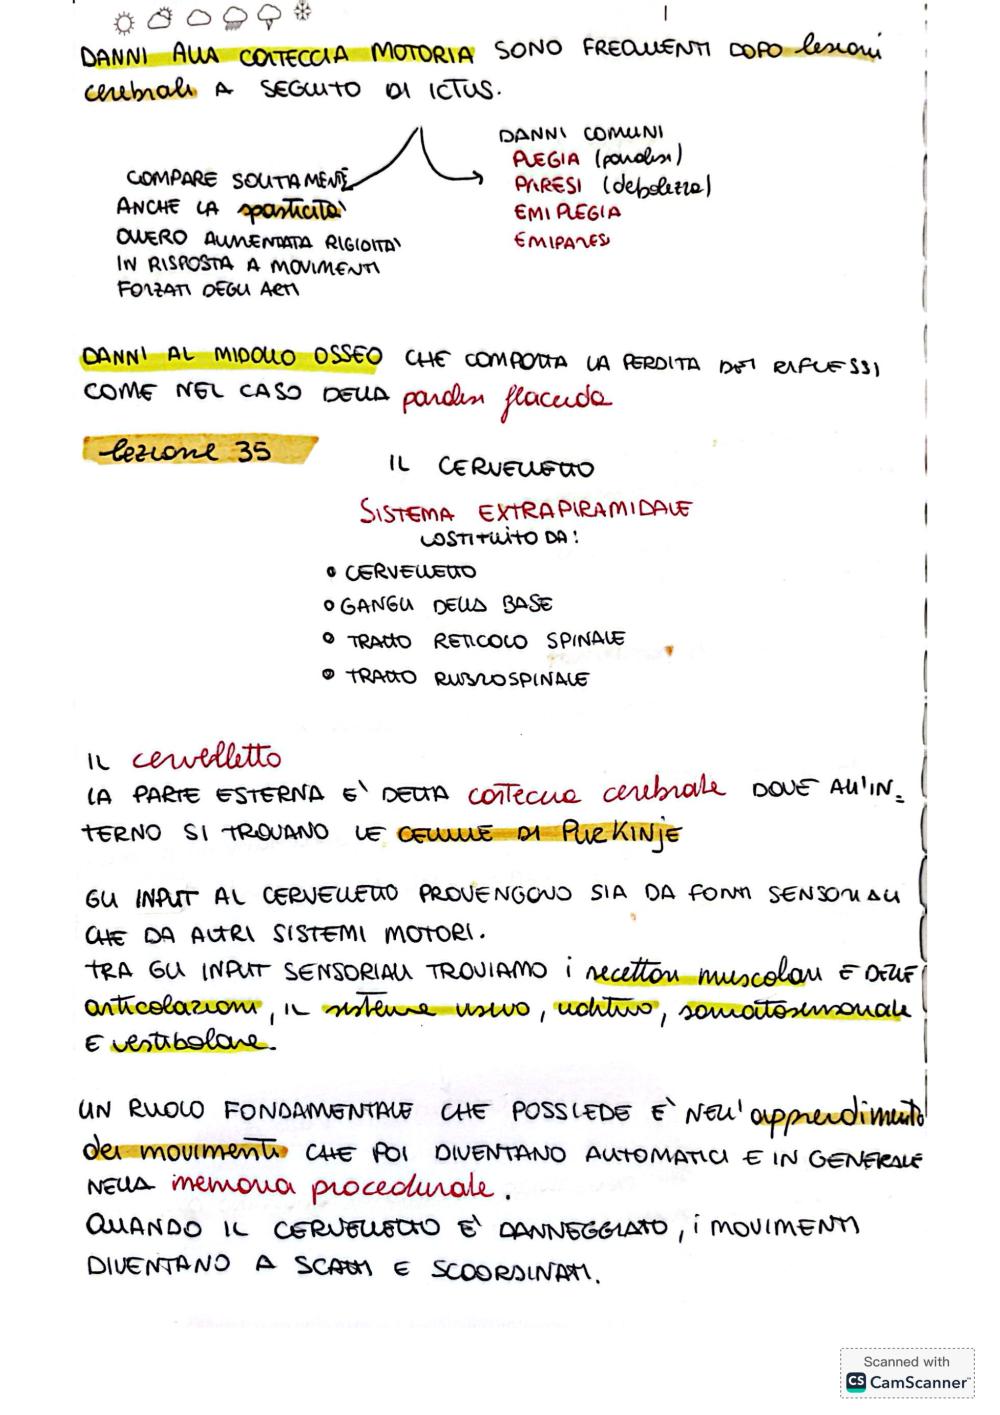 DANNI ALLA CORTECCIA MOTORIA SONO FREQUENTI DOPO lesioni
cerebrali A SEGUITO DI ICTUS.
DANNI COMUNI
PLEGIA (paralisi)
PARESI (debolezza)
EMIPLEGIA
EMIPARESI
COMPARE SOLITAMENTE
ANCHE LA spasticità
OVVERO AUMENTATA RIGIDITÀ
IN RISPOSTA A MOVIMENTI
FORZATI DEGLI ARTI
DANNI AL MIDOLLO OSSEO CHE COMPORTA LA PERDITA DEI RIFLESSI
COME NEL CASO DELLA paralisi flaccida
lezione 35
IL CERVELLETTO
SISTEMA EXTRAPIRAMIDALE
COSTITUITO DA:
• CERVELLETTO
• GANGLI DELLA BASE
• TRATTO RETICOLO SPINALE
• TRATTO RUBROSPINALE
IL cervelletto
LA PARTE ESTERNA E' DETTA corteccia cerebrale DOVE ALL'IN=
TERNO SI TROVANO LE CELLULE DI PURKINJE
GLI INPUT AL CERVELLETTO PROVENGONO SIA DA FONTI SENSORIALI
CHE DA ALTRI SISTEMI MOTORI.
TRA GLI INPUT SENSORIALI TROVIAMO i recettori muscolari E DELLE
articolazioni, IL sistema visivo, uditivo, somatosensoriale
E vestibolare.
UN RUOLO FONDAMENTALE CHE POSSIEDE E' NELL'apprendimento
dei movimenti CHE POI DIVENTANO AUTOMATICI E IN GENERALE
NELLA memoria procedurale.
QUANDO IL CERVELLETTO E' DANNEGGIATO, i MOVIMENTI
DIVENTANO A SCATTI E SCOORDINATI.
Scanned with
CS CamScanner